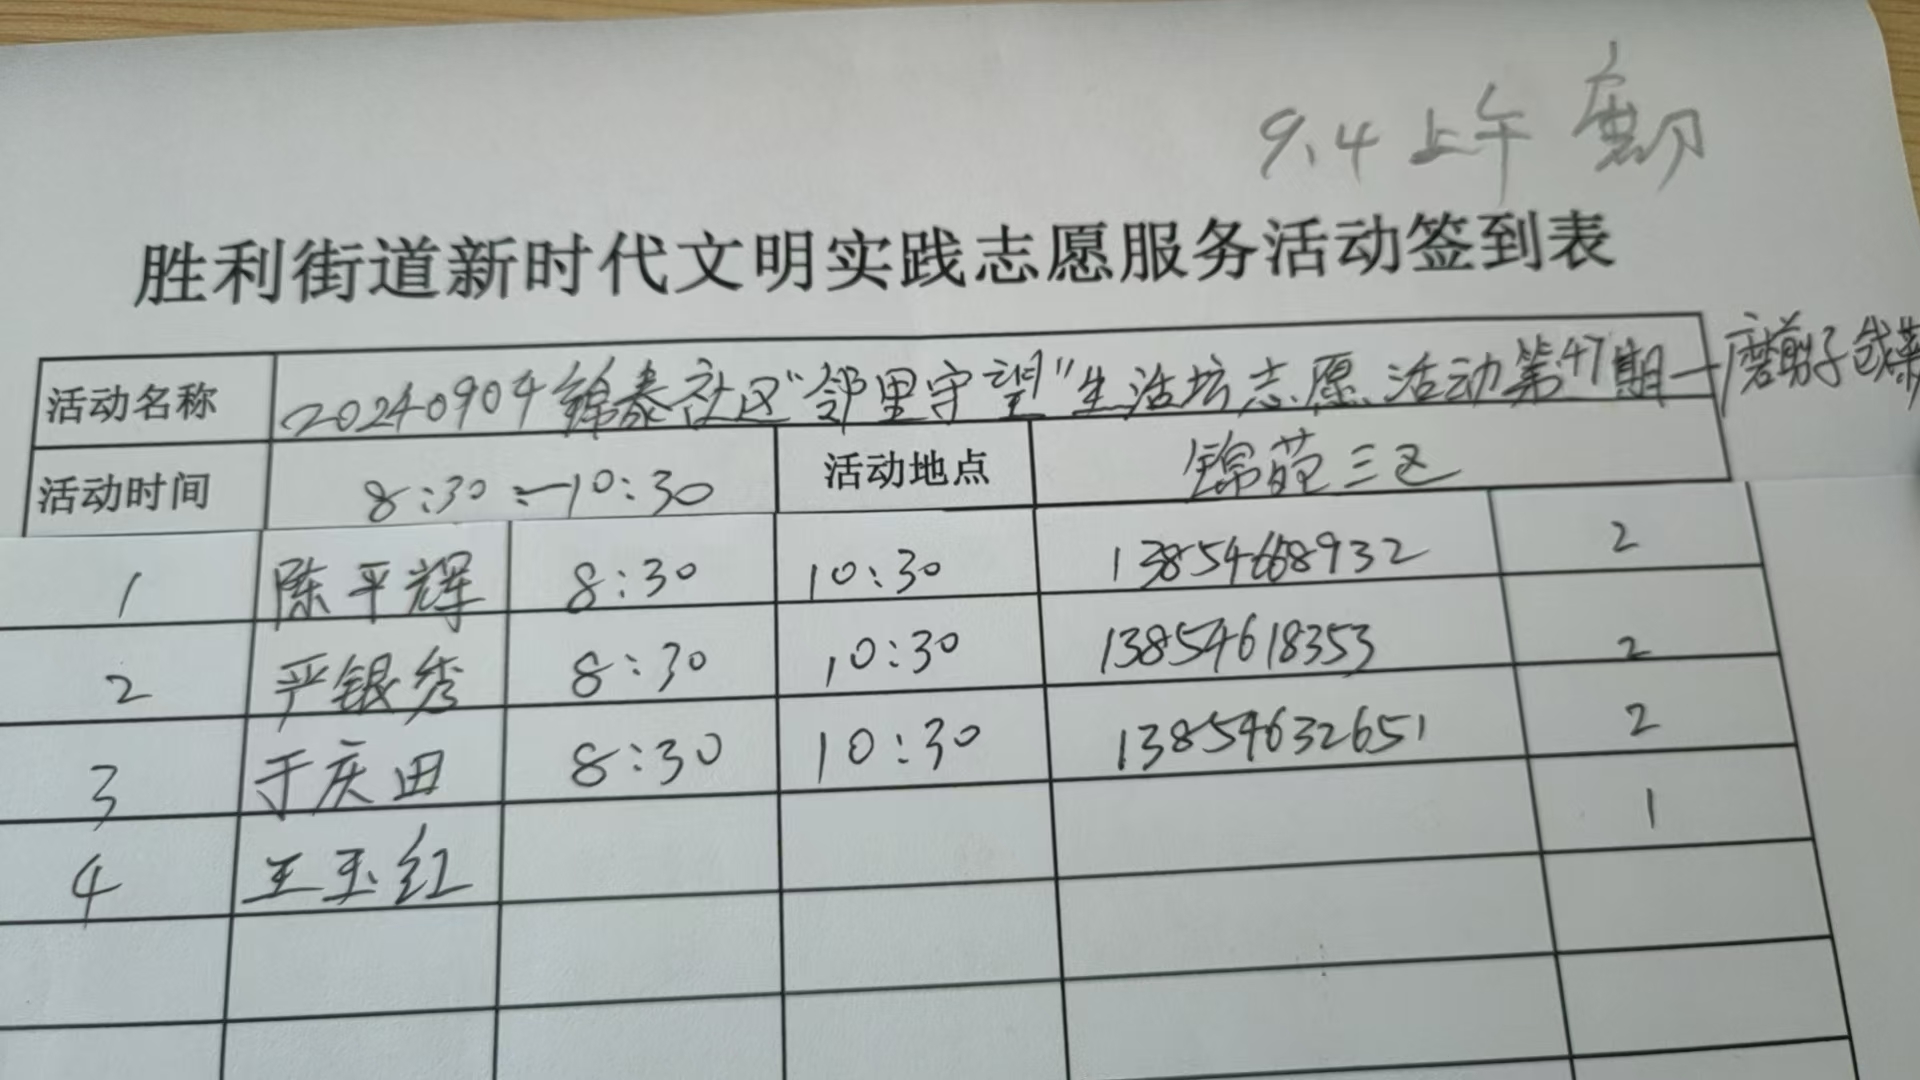 9.4 上午 磨刀
胜利街道新时代文明实践志愿服务活动签到表
活动名称 20240904锦泰社区“邻里守望”生活坊志愿活动第47期—磨剪子戗菜
活动时间 8:30—10:30 活动地点 锦苑三区
1 陈平辉 8:30 10:30 13854668932 2
2 严银秀 8:30 10:30 13854618353 2
3 于庆田 8:30 10:30 13854632651 2
4 王玉红 1